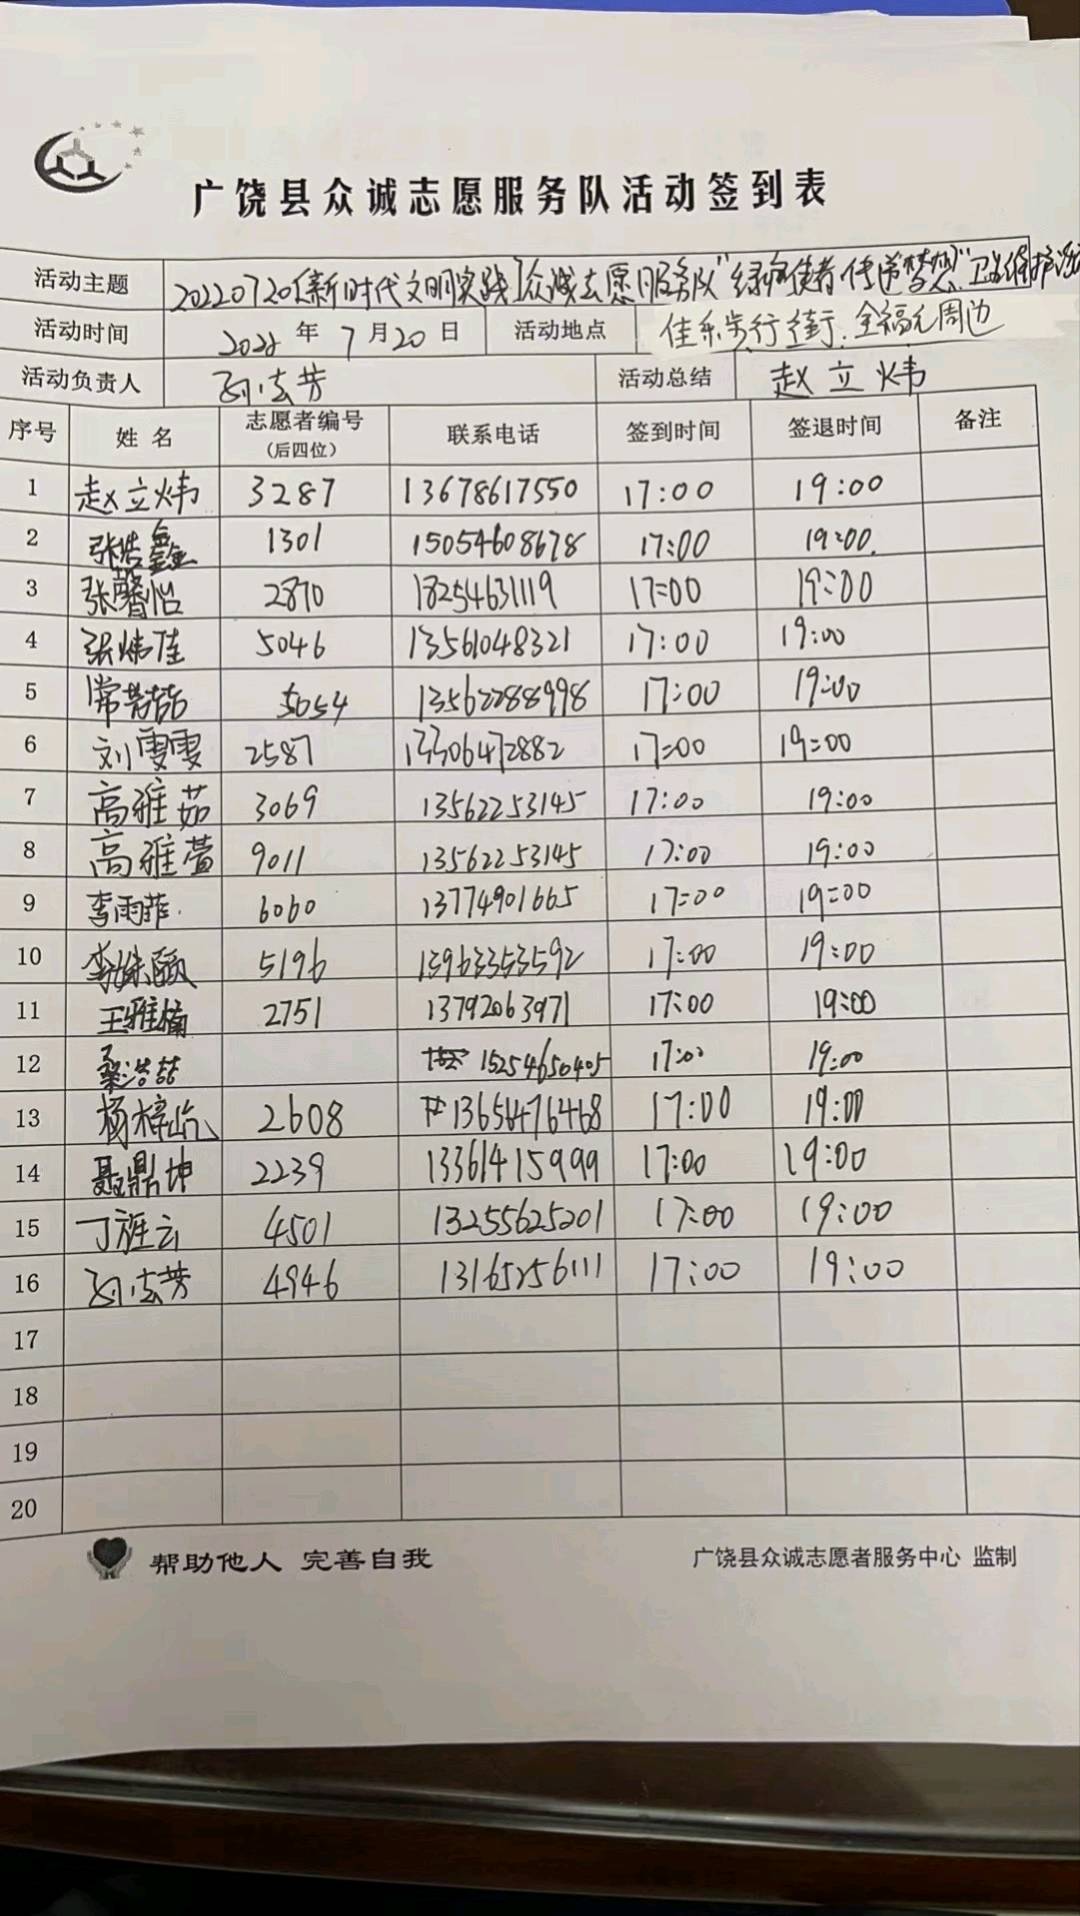 广饶县众诚志愿服务队活动签到表
活动主题 20220720【新时代文明实践】众诚志愿服务队"绿色使者 传递梦想"卫生维护活动
活动时间 2022年7月20日 活动地点 佳乐步行街.全福元周边
活动负责人 孙法芳 活动总结 赵立炜
序号 姓名 志愿者编号(后四位) 联系电话 签到时间 签退时间 备注
1 赵立炜 3287 13678617550 17:00 19:00
2 张浩鑫 1301 15054608678 17:00 19:00
3 张馨怡 2870 18254631119 17:00 19:00
4 张炜佳 5046 13561048321 17:00 19:00
5 常喆喆 5054 13562288998 17:00 19:00
6 刘雯雯 2587 13306472882 17:00 19:00
7 高雅茹 3069 13562253145 17:00 19:00
8 高雅萱 9011 13562253145 17:00 19:00
9 李雨菲 6060 13774901665 17:00 19:00
10 5196 13963353592 17:00 19:00
11 王雅楠 2751 13792063971 17:00 19:00
12 桑浩喆 15254650405 17:00 19:00
13 杨梓屹 2608 13654476468 17:00 19:00
14 聂鼎坤 2239 13361415999 17:00 19:00
15 丁旌云 4501 13255625201 17:00 19:00
16 孙法芳 4946 13165256111 17:00 19:00
17
18
19
20
帮助他人 完善自我 广饶县众诚志愿者服务中心 监制